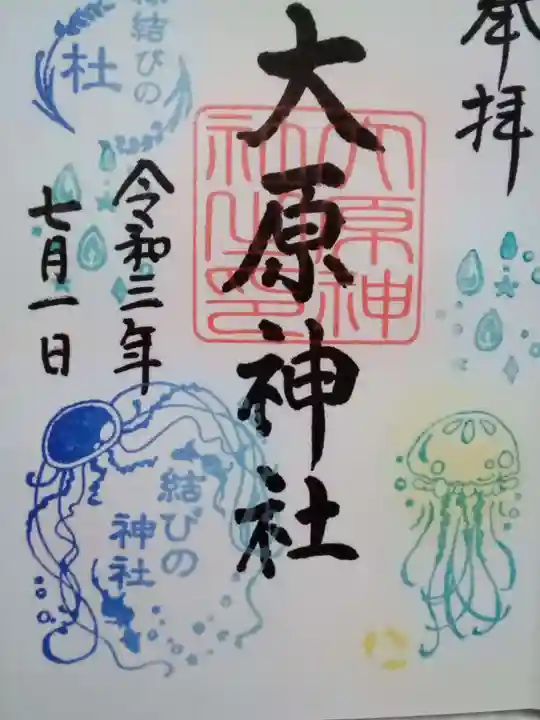 奉拝
大原神社
大原神
社之印
令和三年
七月一日
縁結びの
杜
結びの
神社